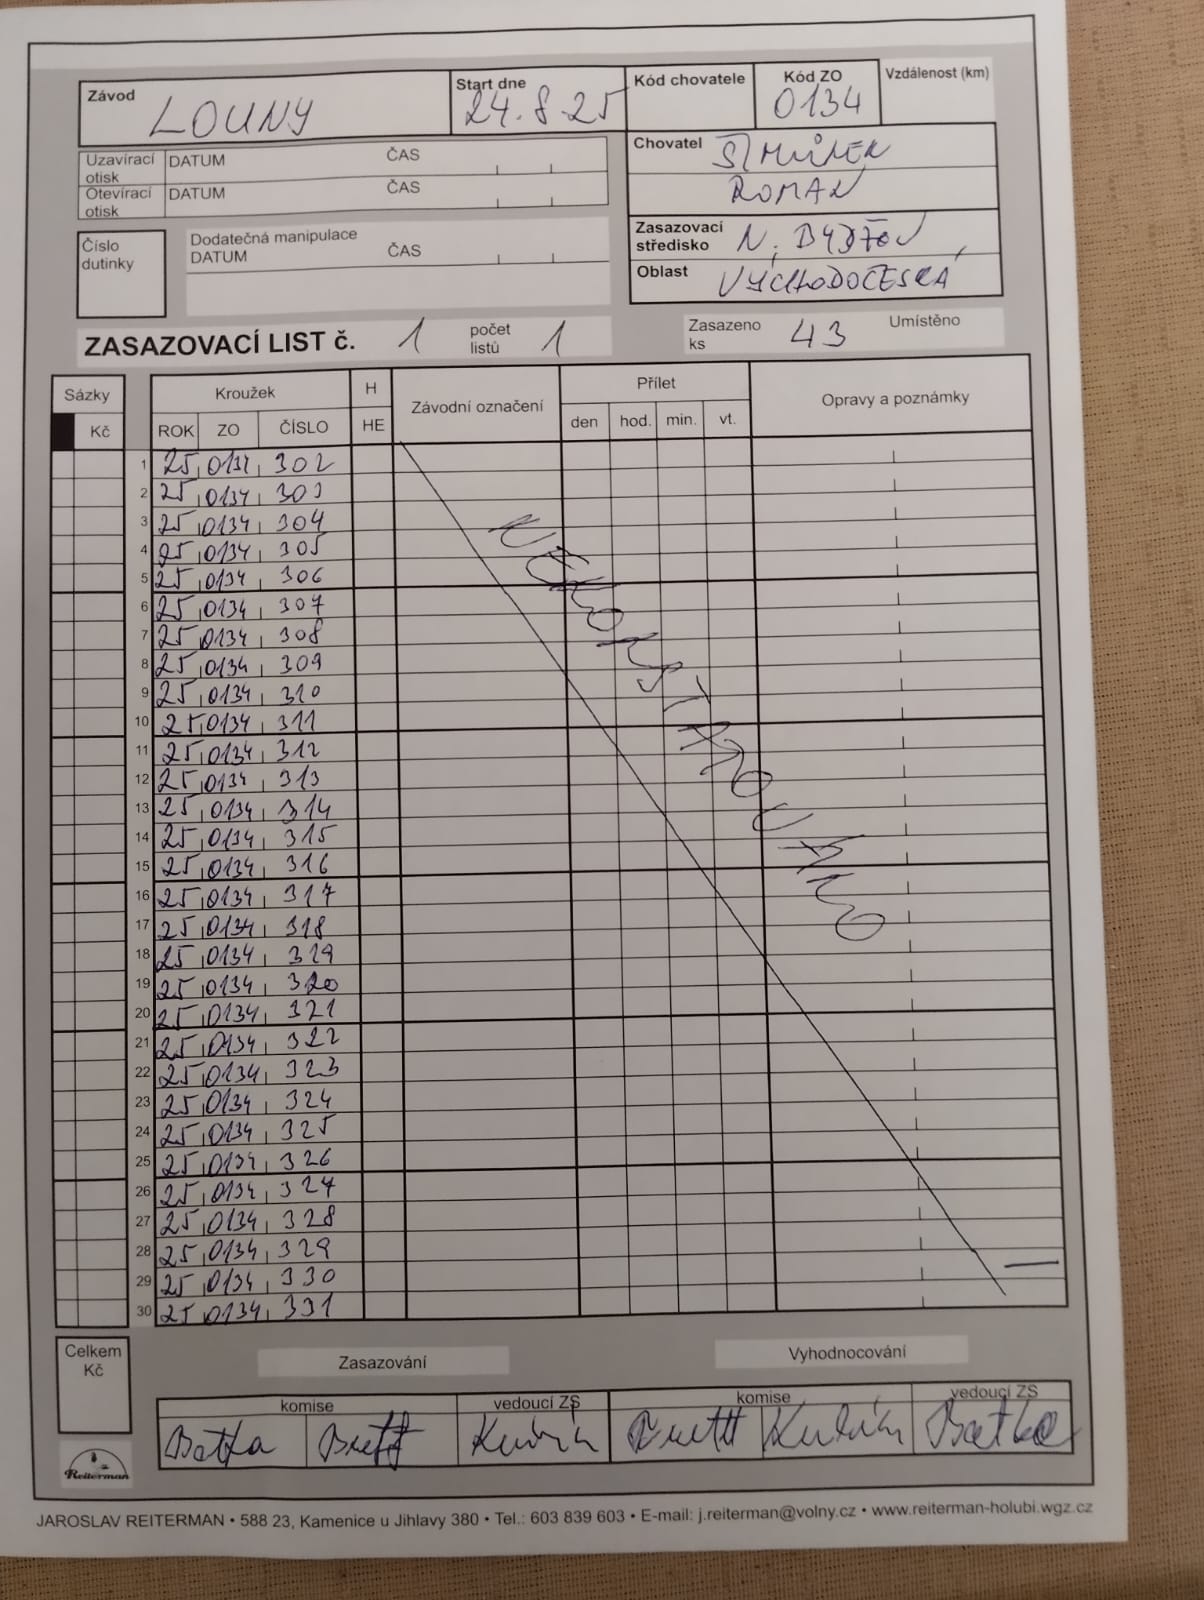 Závod LOUNY Start dne 24.8.25 Kód chovatele Kód ZO 0134 Vzdálenost (km)
Uzavírací otisk DATUM ČAS
Otevírací otisk DATUM ČAS
Chovatel
ROMAN
Číslo dutinky
Dodatečná manipulace
DATUM ČAS
Zasazovací středisko N. BYDŽOV
Oblast VÝCHODOČESKÁ
ZASAZOVACÍ LIST č. 1 počet listů 1 Zasazeno ks 43 Umístěno
Sázky Kroužek H Závodní označení Přílet Opravy a poznámky
Kč ROK ZO ČÍSLO HE den hod. min. vt.
1 25 0134 302
2 25 0134 303
3 25 0134 304
4 25 0134 305
5 25 0134 306
6 25 0134 307
7 25 0134 308
8 25 0134 309
9 25 0134 310
10 25 0134 311
11 25 0134 312
12 25 0134 313
13 25 0134 314
14 25 0134 315
15 25 0134 316
16 25 0134 317
17 25 0134 318
18 25 0134 319
19 25 0134 320
20 25 0134 321
21 25 0134 322
22 25 0134 323
23 25 0134 324
24 25 0134 325
25 25 0134 326
26 25 0134 327
27 25 0134 328
28 25 0134 329
29 25 0134 330
30 25 0134 331
Celkem Kč
Zasazování Vyhodnocování
komise vedoucí ZS komise vedoucí ZS
Batka
Batka
Reiterman
JAROSLAV REITERMAN • 588 23, Kamenice u Jihlavy 380 • Tel.: 603 839 603 • E-mail: j.reiterman@volny.cz • www.reiterman-holubi.wgz.cz